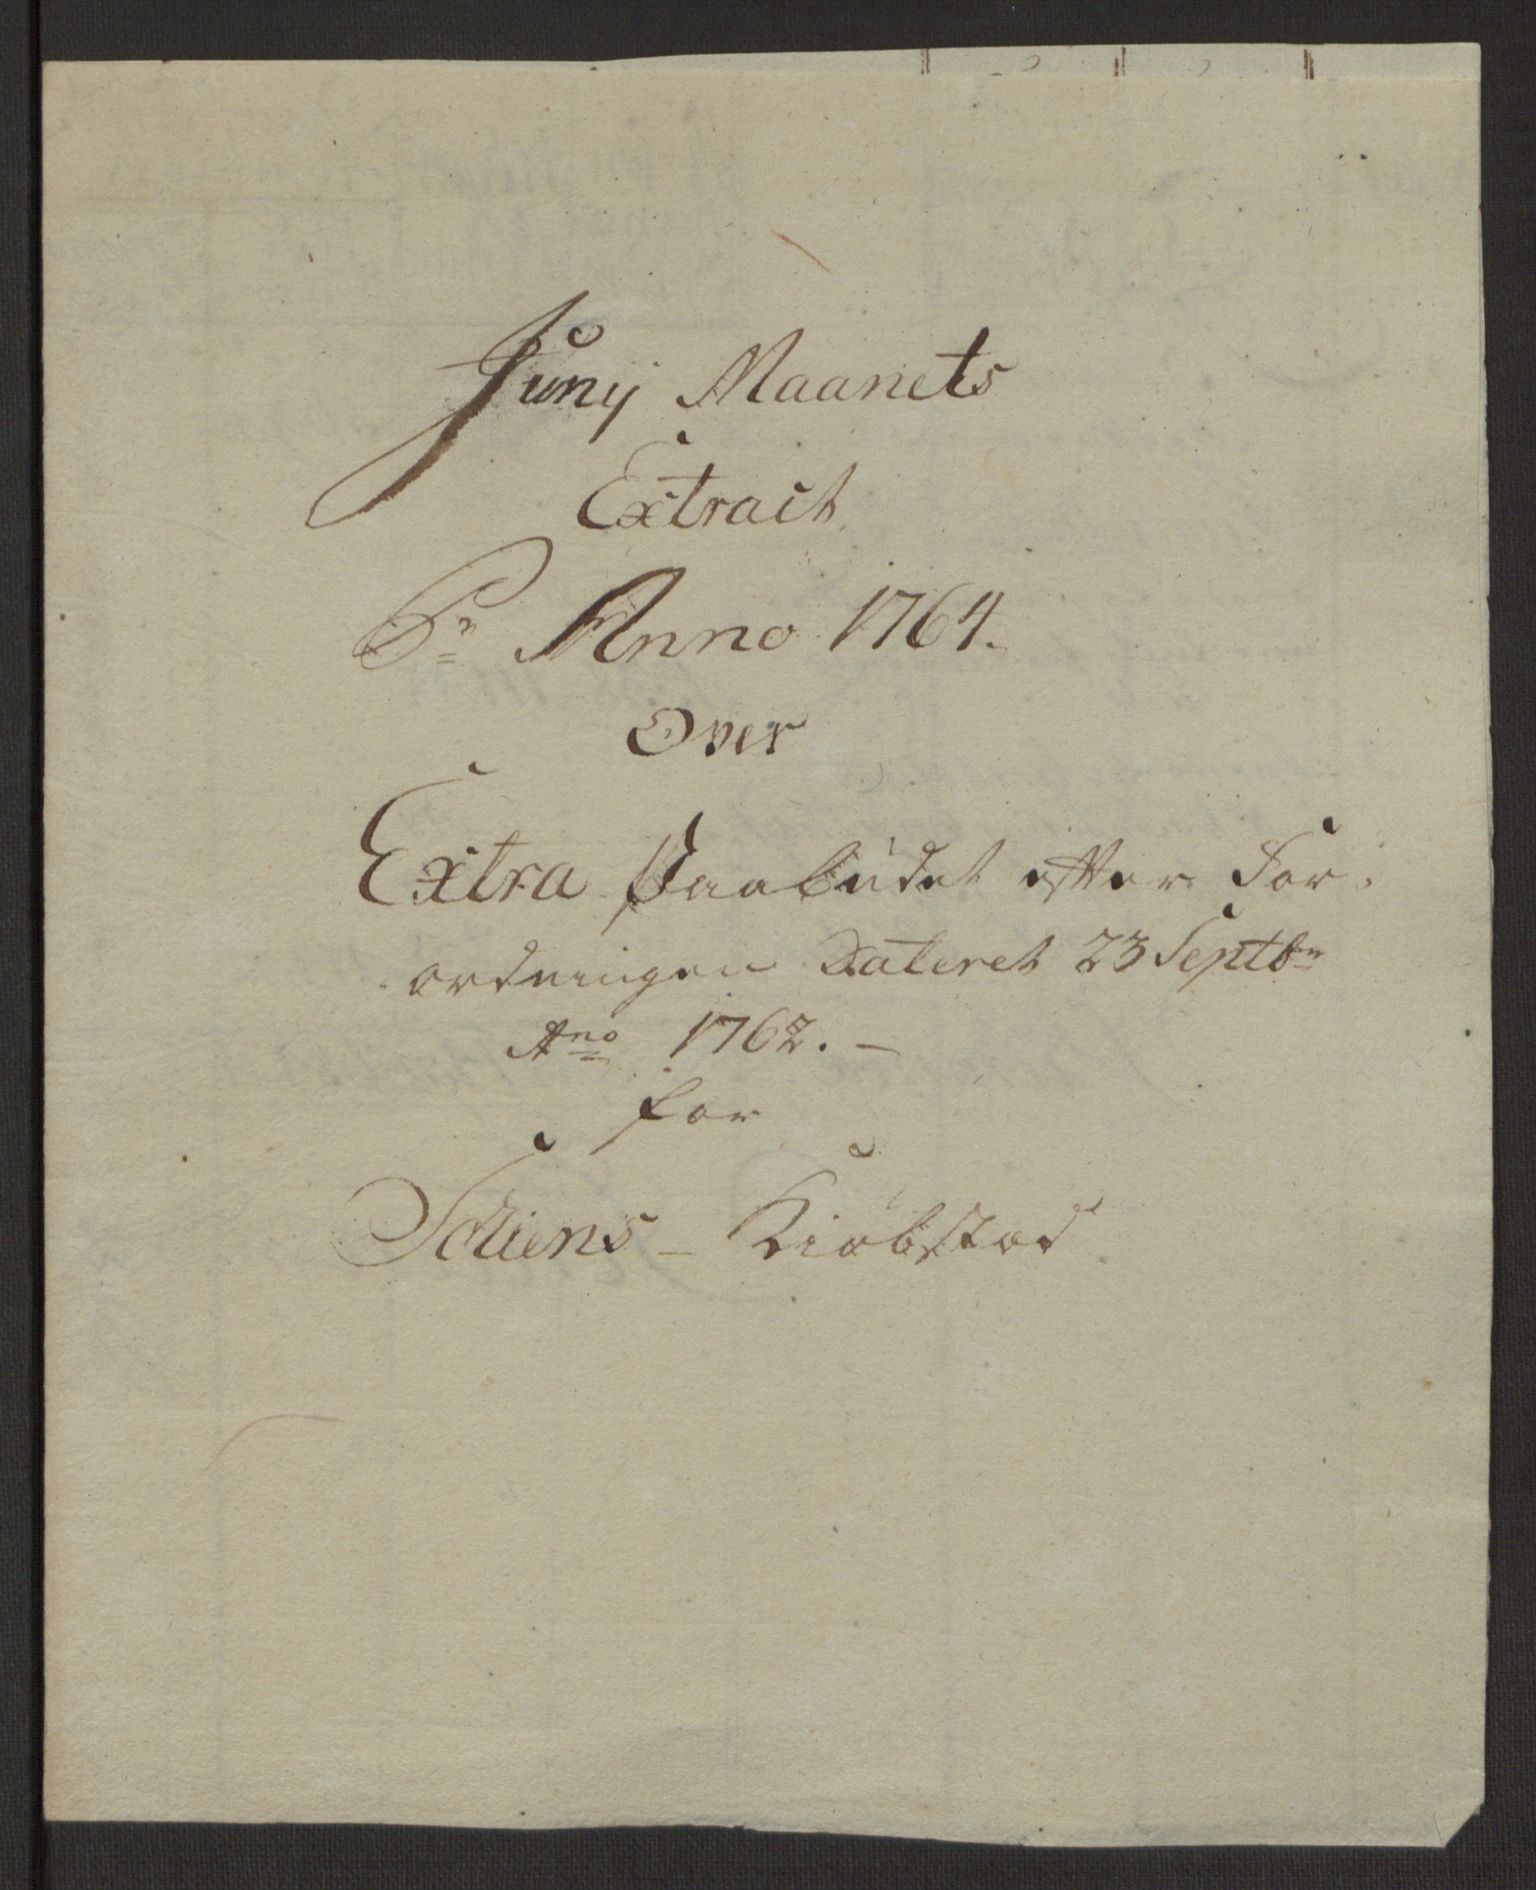 Junij Maanets
Extract
Pr Anno 1764.
Over
Extra Paabudet efter For-
ordningen Dateret 23 Septbr
Ano 1762. –
for
Schiens – Kiøbstad